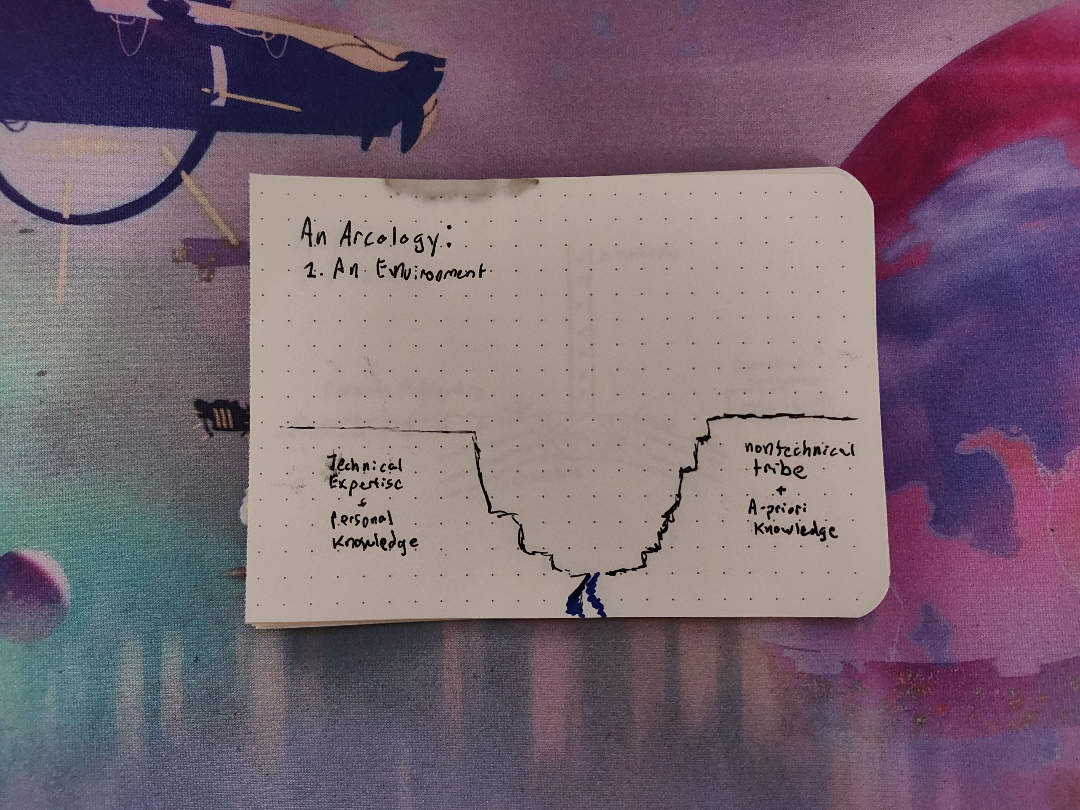 An Arcology:
1. An Environment
Technical
Expertise
&
Personal
Knowledge
nontechnical
tribe
+
A-priori
Knowledge